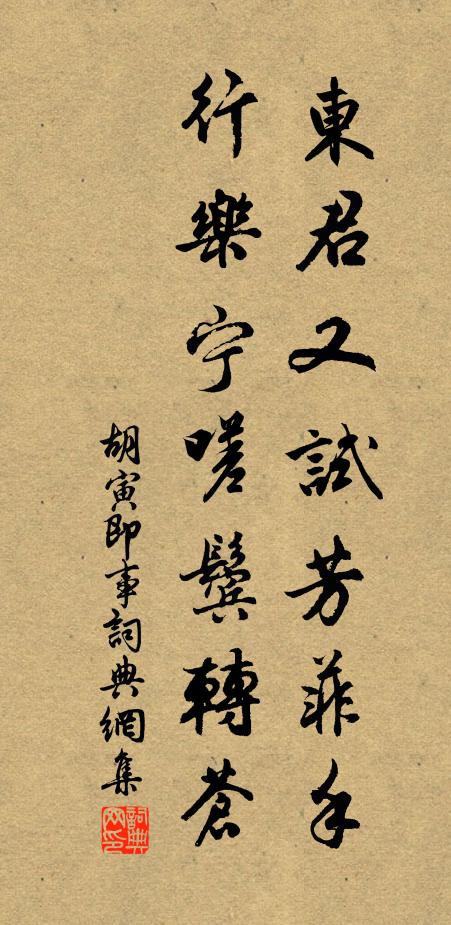 東君又試芳菲手
行樂宁嗟鬢轉蒼
胡寅即事詞典網集
詞典網印